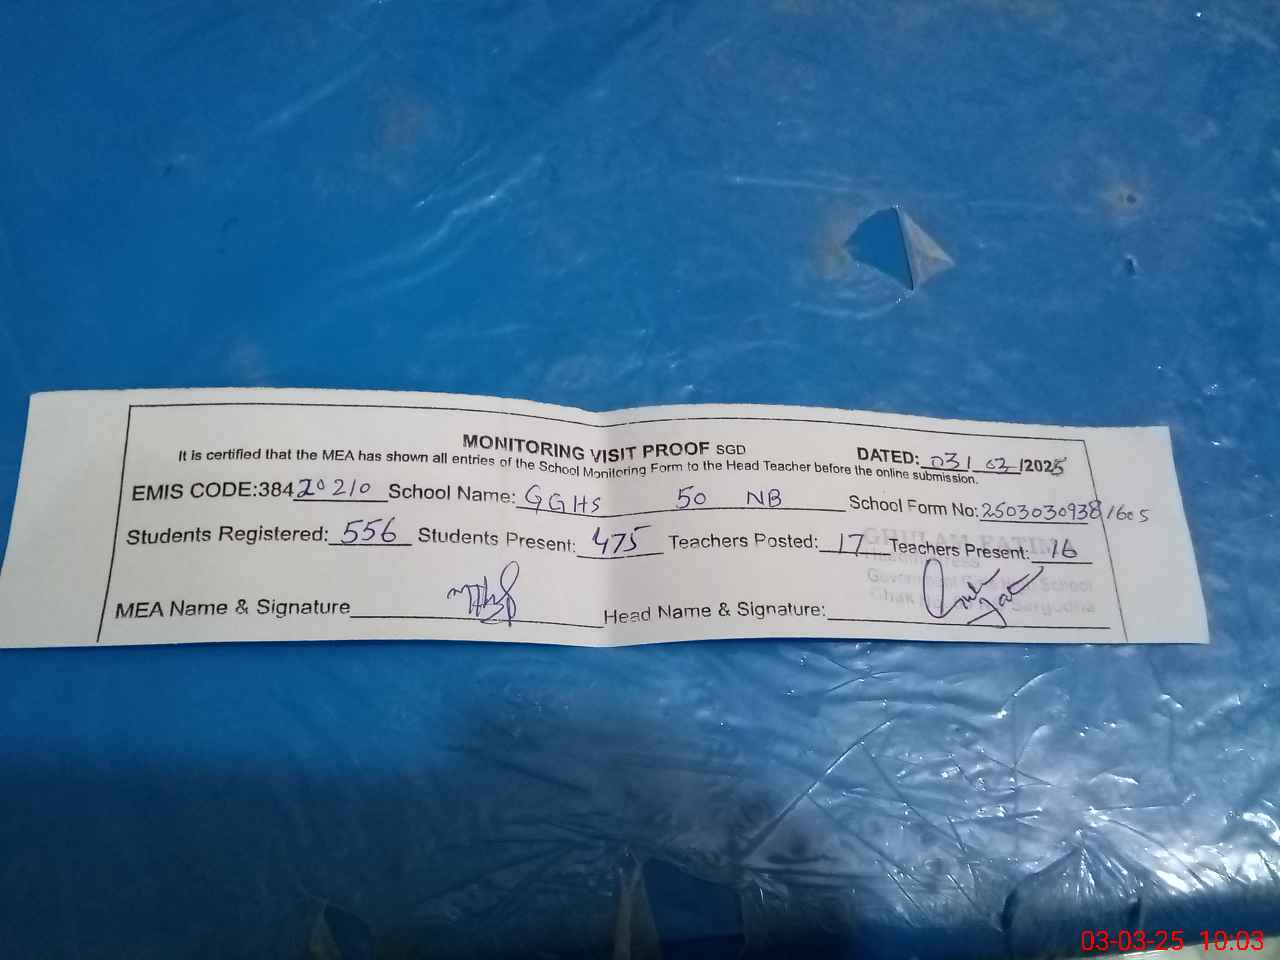 MONITORING VISIT PROOF SGD DATED: 03/ 03 /2025
It is certified that the MEA has shown all entries of the School Monitoring Form to the Head Teacher before the online submission.
EMIS CODE:38420210 School Name: GGHS 50 NB School Form No: 2503030938/1605
Students Registered: 556 Students Present: 475 Teachers Posted: 17 Teachers Present: 16
GHULAM FATIMA
Headmistress
School
Chak Sargodha
MEA Name & Signature Head Name & Signature:
03-03-25 10:03